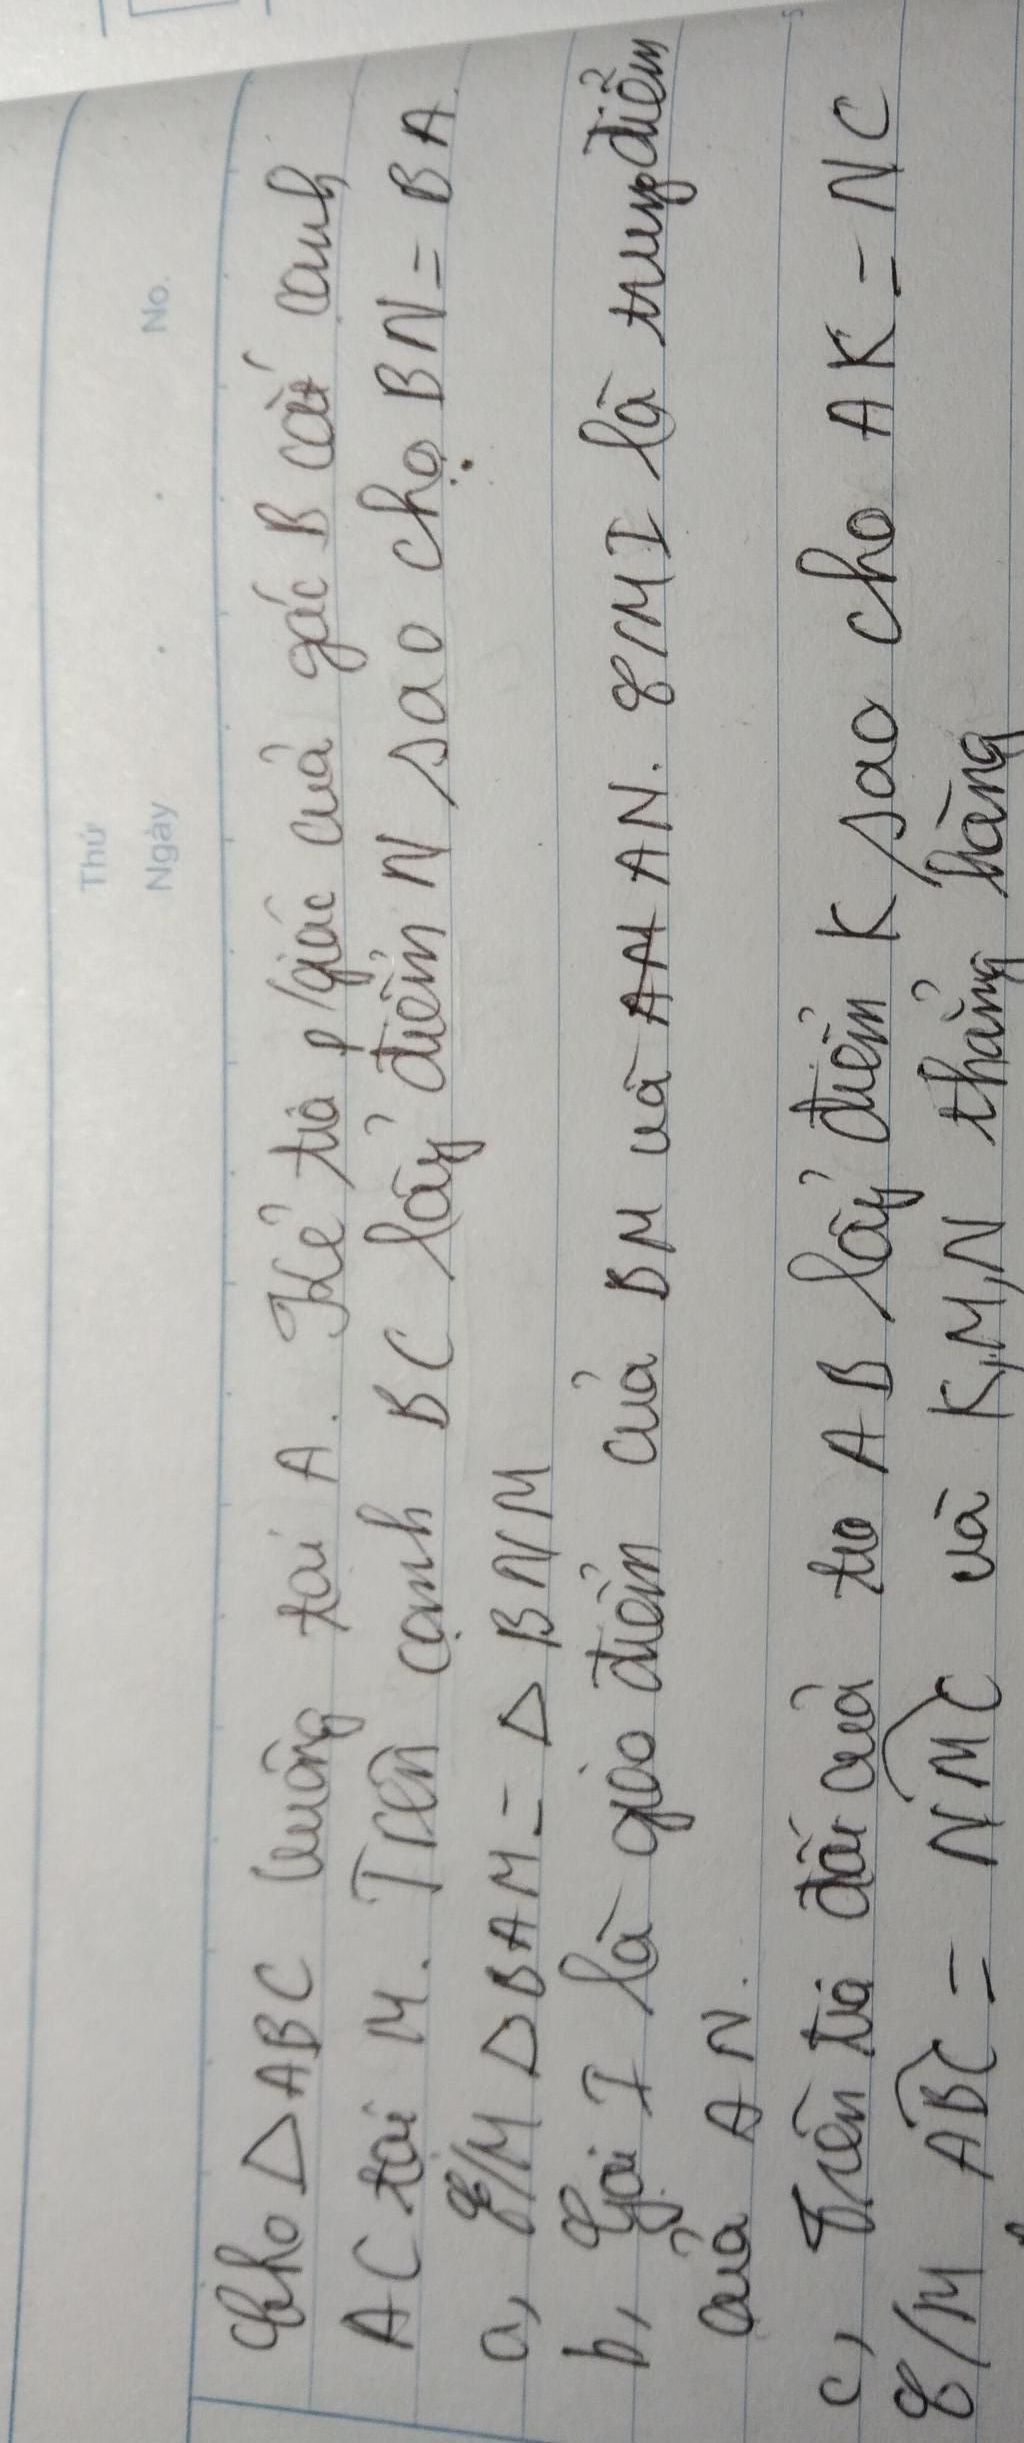 Thứ
Ngày . . No.
Cho △ABC vuông tại A. Kẻ tia p/giác của góc B cắt cạnh
AC tại M. Trên cạnh BC lấy điểm N sao cho BN = BA.
a, C/M △BAM = △BNM
b, Gọi I là giao điểm của BM và AN. C/M I là trung điểm
của AN.
c, Trên tia đối của tia AB lấy điểm K sao cho AK = NC
C/M ABC = NMC và K,M,N thẳng hàng